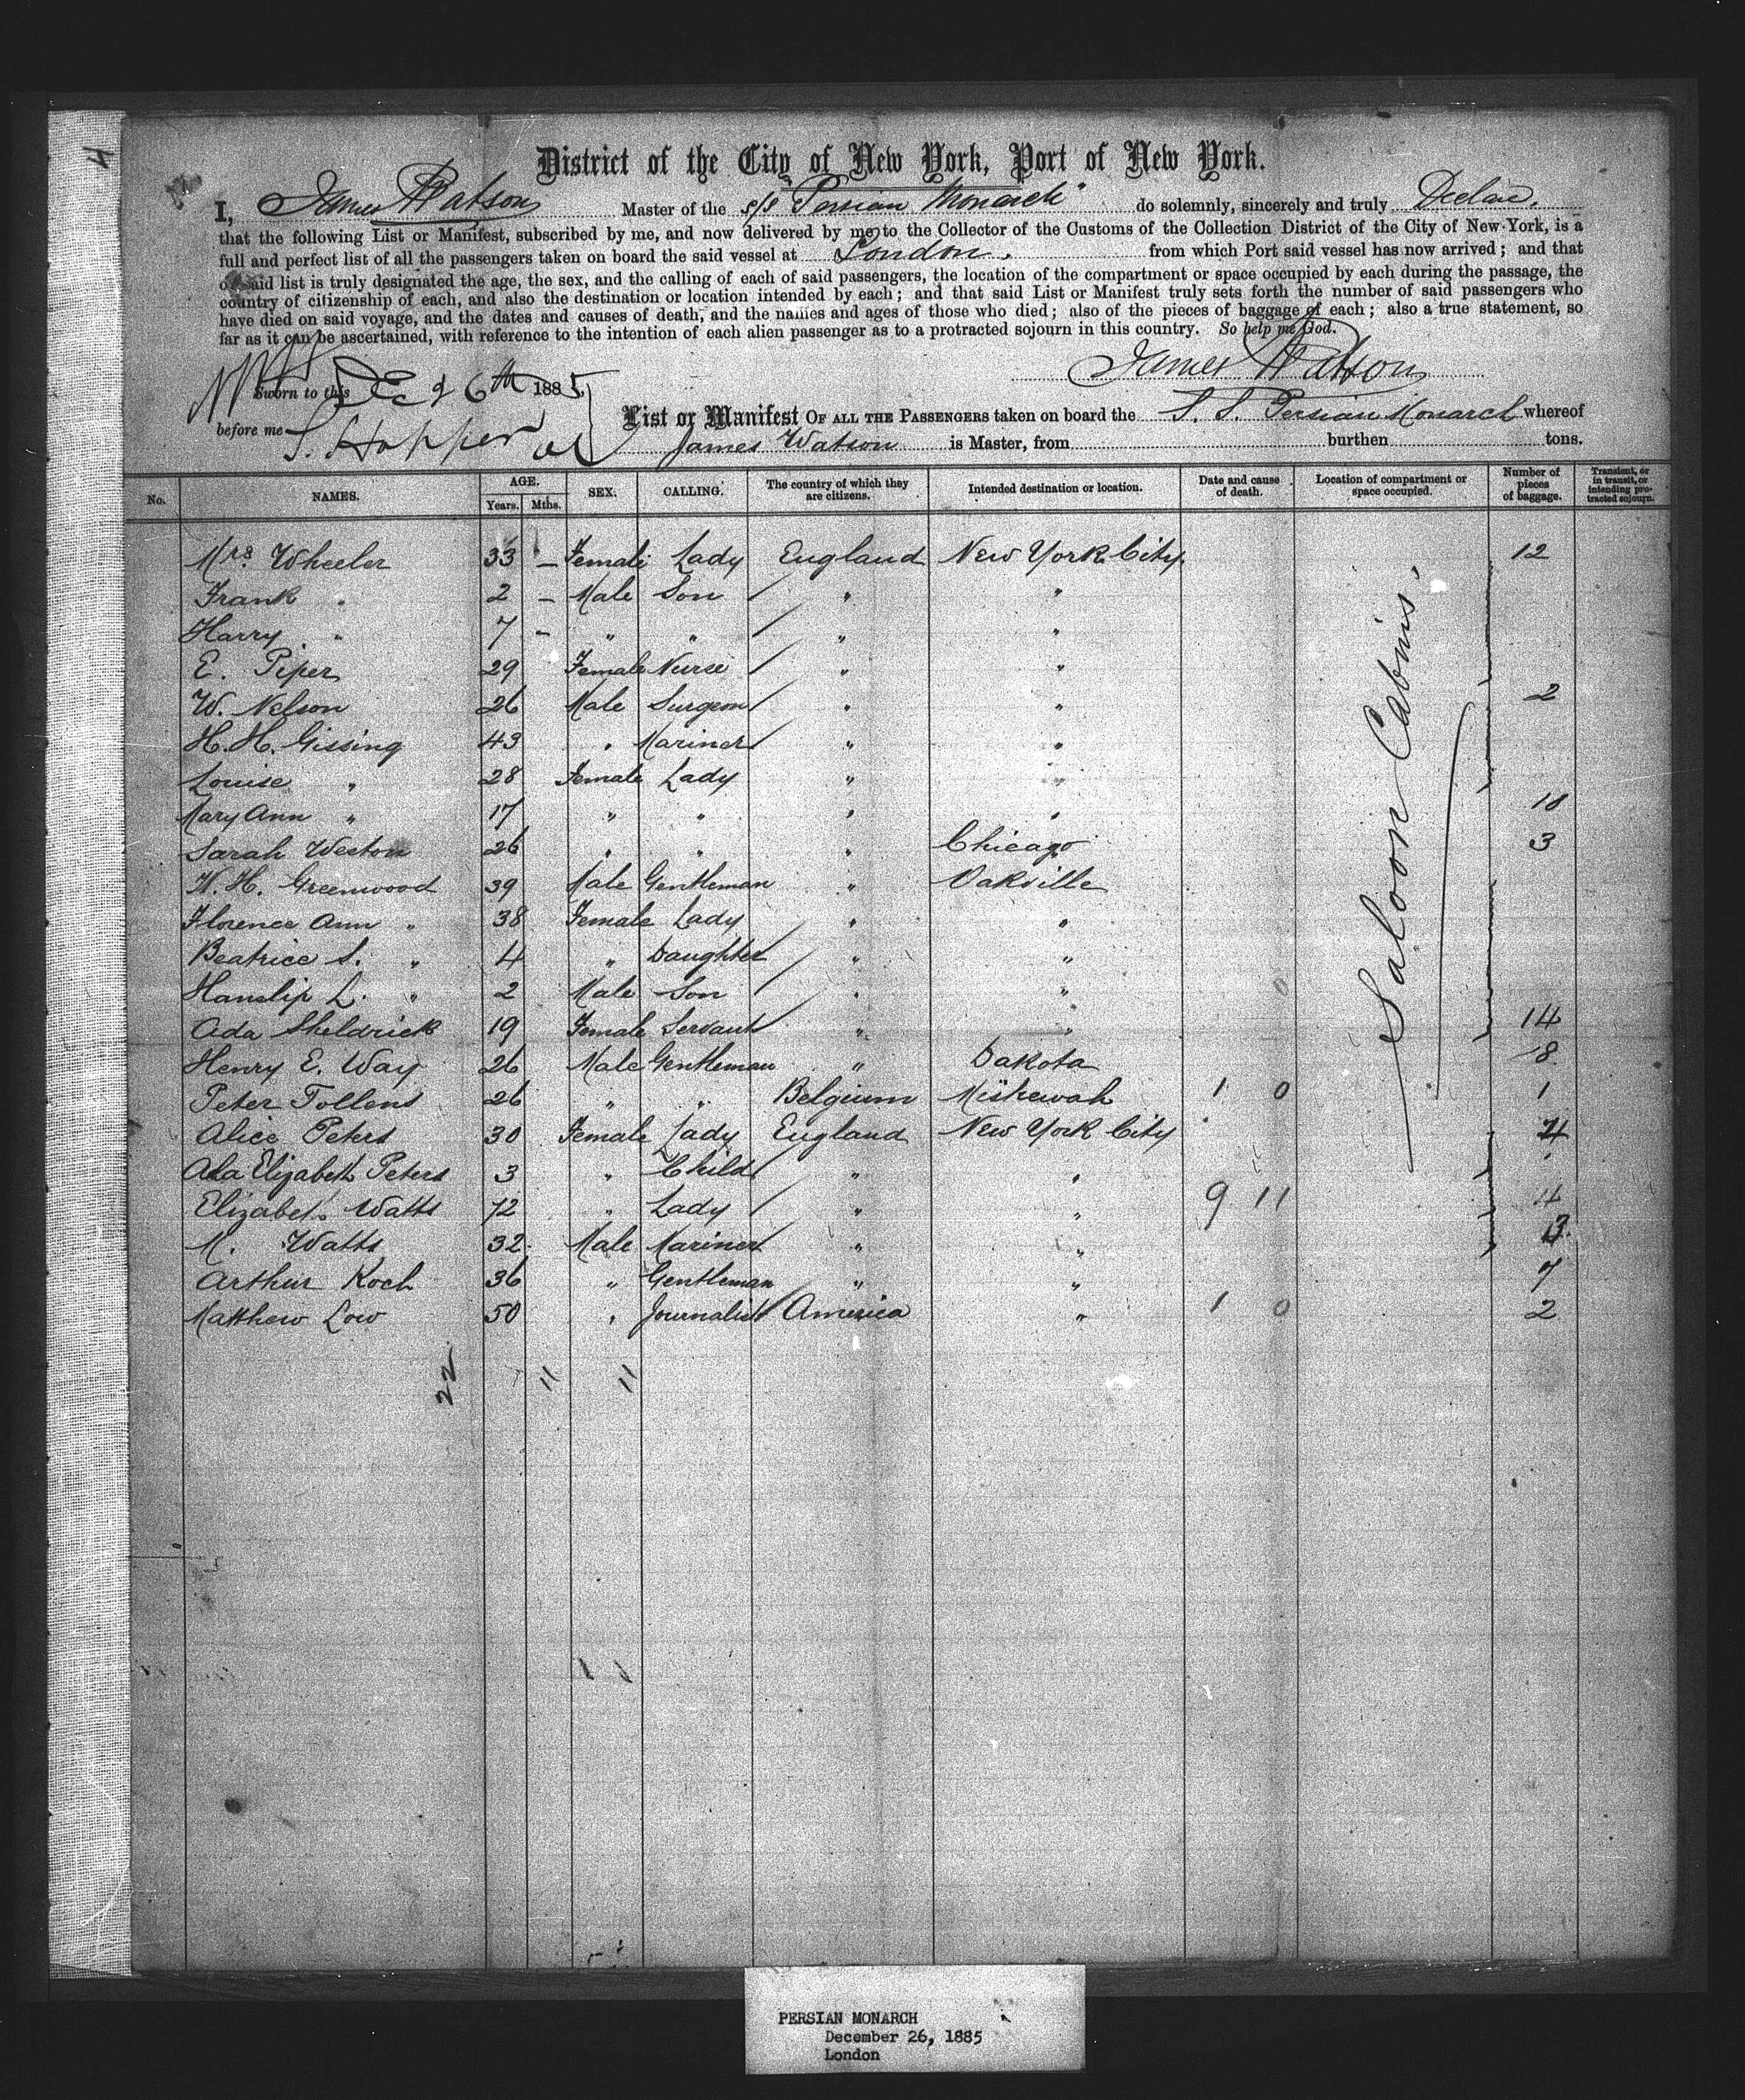 4
District of the City of New York, Port of New York.
I, James Watson Master of the s/s "Persian Monarch" do solemnly, sincerely and truly Declare.
that the following List or Manifest, subscribed by me, and now delivered by me to the Collector of the Customs of the Collection District of the City of New-York, is a
full and perfect list of all the passengers taken on board the said vessel at London. from which Port said vessel has now arrived; and that
on said list is truly designated the age, the sex, and the calling of each of said passengers, the location of the compartment or space occupied by each during the passage, the
country of citizenship of each, and also the destination or location intended by each; and that said List or Manifest truly sets forth the number of said passengers who
have died on said voyage, and the dates and causes of death, and the names and ages of those who died; also of the pieces of baggage of each; also a true statement, so
far as it can be ascertained, with reference to the intention of each alien passenger as to a protracted sojourn in this country. So help me God.
James Watson
Sworn to this Dec 26th 1885
before me S. Hopper
List or Manifest OF ALL THE PASSENGERS taken on board the S. S. Persian Monarch whereof
James Watson is Master, from burthen tons.
No. NAMES. AGE. Years. Mths. SEX. CALLING. The country of which they are citizens. Intended destination or location. Date and cause of death. Location of compartment or space occupied. Number of pieces of baggage. Transient, or in transit, or intending protracted sojourn.
Mrs. Wheeler 33 – Female Lady England New York City. 12
Frank " 2 – Male Son / " "
Harry " 7 – " " / " "
E. Piper 29 Female Nurse / " "
W. Nelson 26 Male Surgeon / " " 2
H. H. Gissing 43 " Mariner / " "
Louise " 28 Female Lady " "
Mary Ann " 17 " " " " 10
Sarah Weston 26 " " " Chicago 3
W. H. Greenwood 39 Male Gentleman " Oakville
Florence Ann " 38 Female Lady " "
Beatrice S. " 4 " Daughter / " "
Hanslip L. " 2 Male Son / " " 0
Ada Sheldrick 19 Female Servant " " 14
Henry E. Way 26 Male Gentleman " Dakota 8
Peter Tollens 26 " " Belgium 1 0 1
Alice Peters 30 Female Lady England New York City 4
Ada Elizabeth Peters 3 " Child / " "
Elizabeth Watts 72 " Lady / " " 9 11 4
M. Watts 32 Male Mariner " " 3
Arthur Koch 36 " Gentleman " " 7
Matthew Low 50 " Journalist America " 1 0 2
Saloon Cabins
22 11 11
PERSIAN MONARCH
December 26, 1885
London